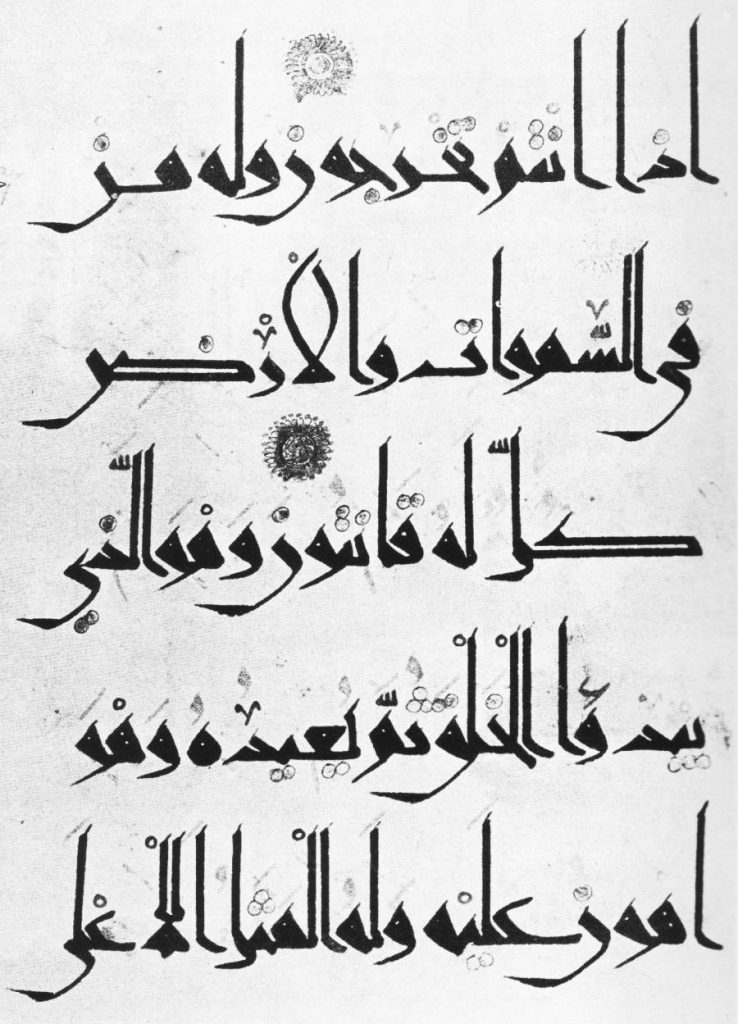 اذا انتم تخرجون وله من
في السّموات والارض
كلّ له قانتون وهو الّذي
يبدؤا الخلق ثمّ يعيده وهو
اهون عليه وله المثل الاعلى